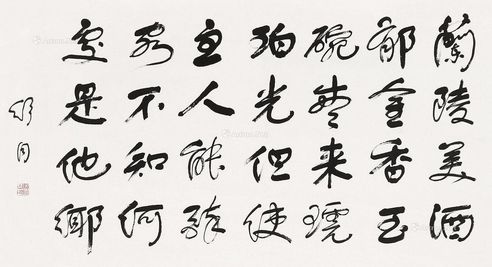 蘭陵美酒
郁金香玉
碗盛来琥
珀光但使
主人能醉
客不知何
處是他鄉
舒同